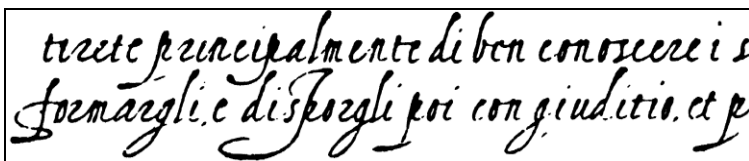 tirete principalmente di ben conoscere i s
formargli. e disporgli poi con giuditio. et p